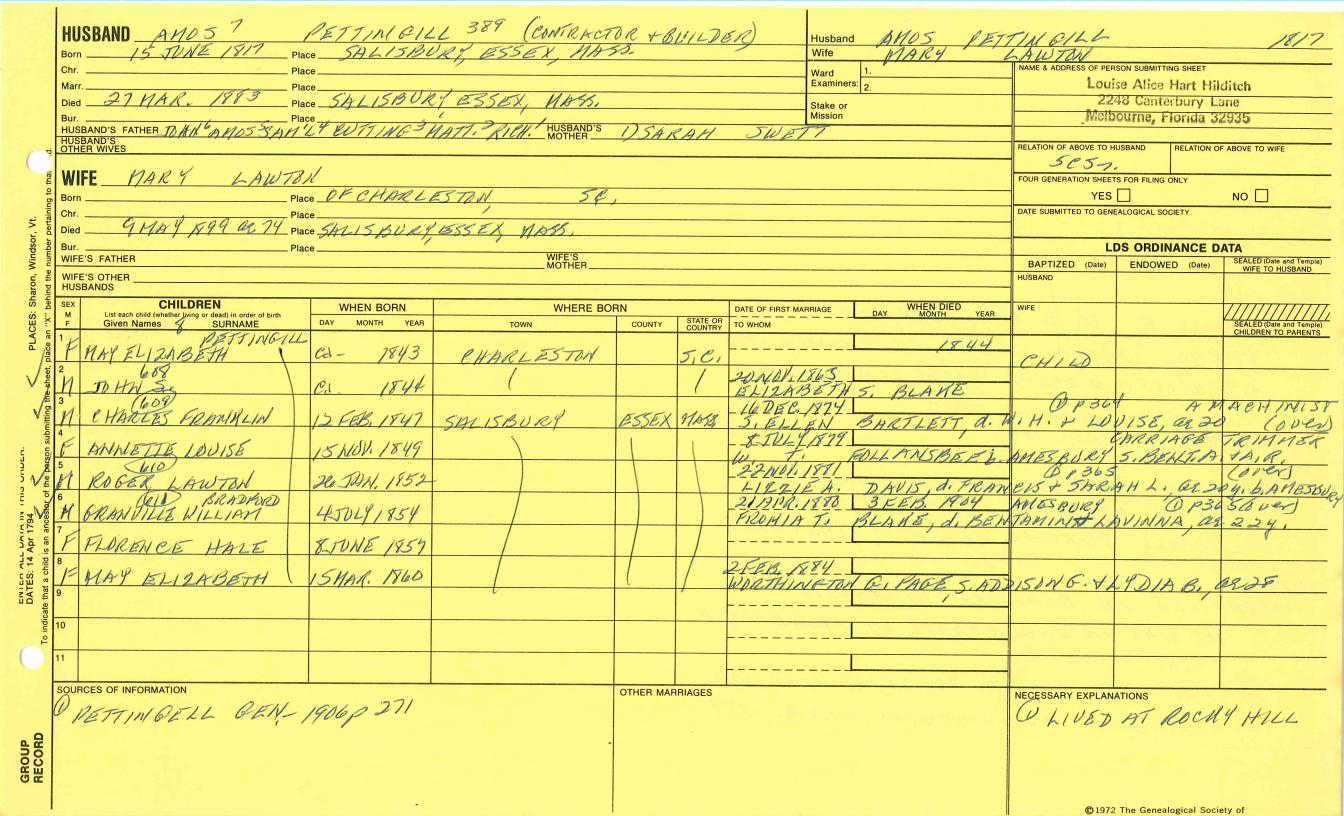 HUSBAND AMOS 7 PETTINGILL 389 (CONTRACTOR + BUILDER)
Born 15 JUNE 1817 Place SALISBURY, ESSEX, MASS.
Chr. Place
Marr. Place
Died 27 MAR. 1883 Place SALISBURY, ESSEX, MASS.
Bur. Place
HUSBAND'S FATHER JOHN 6 AMOS 5 SAM'L 4 CUTTING 3 MATT. 2 RICH. 1 HUSBAND'S MOTHER 1) SARAH SWETT
HUSBAND'S OTHER WIVES
Husband AMOS PETTINGILL 1817
Wife MARY LAWTON
Ward Examiners: 1.
2.
Stake or Mission
NAME & ADDRESS OF PERSON SUBMITTING SHEET
Louise Alice Hart Hilditch
2248 Canterbury Lane
Melbourne, Florida 32935
RELATION OF ABOVE TO HUSBAND RELATION OF ABOVE TO WIFE
5C5r.
FOUR GENERATION SHEETS FOR FILING ONLY
YES NO
DATE SUBMITTED TO GENEALOGICAL SOCIETY
WIFE MARY LAWTON
Born Place OF CHARLESTON, SC.
Chr. Place
Died 9 MAY 1899 ae 74 Place SALISBURY, ESSEX, MASS.
Bur. Place
WIFE'S FATHER WIFE'S MOTHER
WIFE'S OTHER HUSBANDS
LDS ORDINANCE DATA
BAPTIZED (Date) ENDOWED (Date) SEALED (Date and Temple) WIFE TO HUSBAND
HUSBAND
WIFE
SEALED (Date and Temple) CHILDREN TO PARENTS
SEX M F CHILDREN WHEN BORN WHERE BORN DATE OF FIRST MARRIAGE WHEN DIED
List each child (whether living or dead) in order of birth
Given Names SURNAME DAY MONTH YEAR TOWN COUNTY STATE OR COUNTRY TO WHOM DAY MONTH YEAR
PETTINGILL
1 F MAY ELIZABETH Ca- 1843 CHARLESTON S.C. 1844 CHILD
608
2 M JOHN S. Ca. 1844 20 NOV. 1863
ELIZABETH S. BLAKE
609
3 M CHARLES FRANKLIN 12 FEB. 1847 SALISBURY ESSEX MASS 16 DEC. 1874 ① p364 A MACHINIST
S. ELLEN BARTLETT, d. W. H. + LOUISE, ae 20 (over)
4 F ANNETTE LOUISE 15 NOV. 1849 8 JULY 1879 CARRIAGE TRIMMER
W. T. FOLLANSBEE b. AMESBURY S. BENJ. A. + A.R.
610
5 M ROGER LAWTON 26 JAN. 1852 22 NOV. 1881 ① p365 (over)
LIZZIE A. DAVIS, d. FRANCIS + SARAH L., ae 20y. b. AMESBURY
611 BRADFORD
6 M GRANVILLE WILLIAM 4 JULY 1854 21 APR. 1880 3 FEB. 1904 AMESBURY ① p365 (over)
FROHIA T. BLAKE, d. BENTAMIN + LAVINNA, ae 22y.
7 F FLORENCE HALE 8 JUNE 1857
8 F MAY ELIZABETH 15 MAR. 1860 2 FEB. 1884
WORTHINGTON G. PAGE, S. ADDISON G. + LYDIA B., ae 28
9
10
11
SOURCES OF INFORMATION OTHER MARRIAGES NECESSARY EXPLANATIONS
① PETTINGELL GEN.- 1906 p 271
① LIVED AT ROCKY HILL
©1972 The Genealogical Society of
PLACES: Sharon, Windsor, Vt.
ENTER ALL DATA IN THIS ORDER:
DATES: 14 Apr 1794
To indicate that a child is an ancestor of the person submitting the sheet, place an "X" behind the number pertaining to that
GROUP RECORD